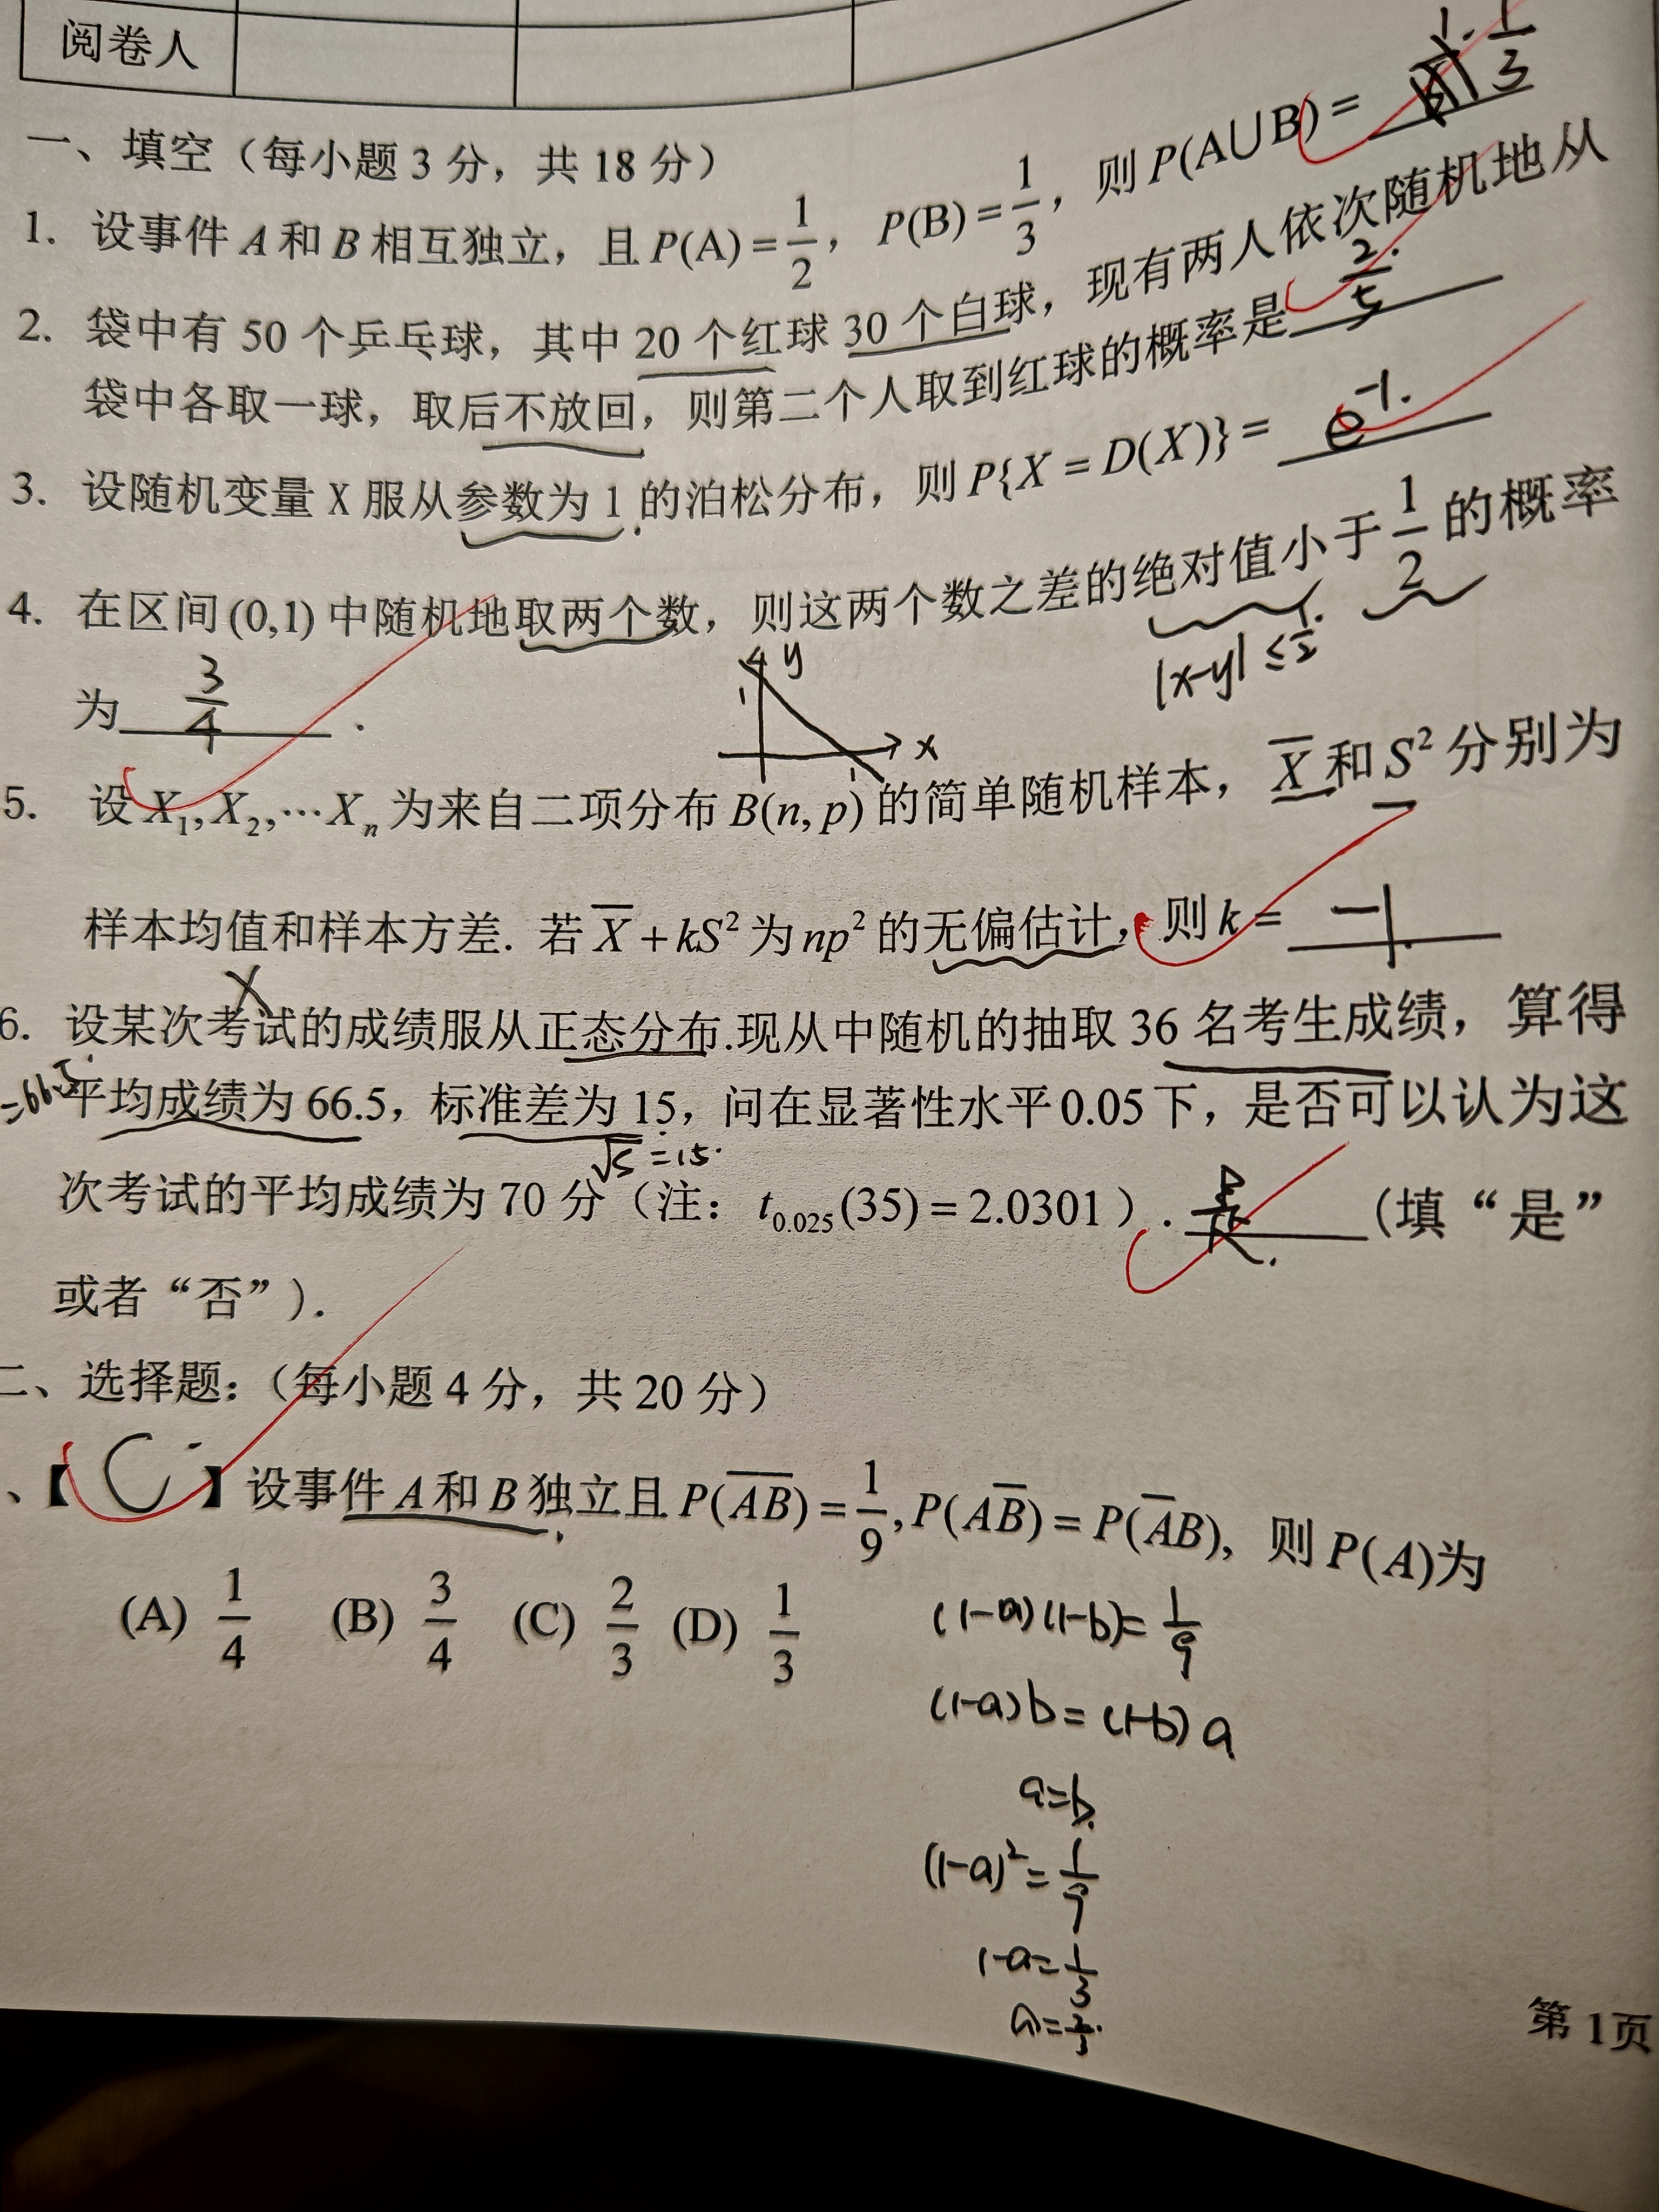 阅卷人
一、填空（每小题 3 分，共 18 分）
1. 设事件 A 和 B 相互独立，且 P(A)=1/2，P(B)=1/3，则 P(A∪B)= 1/3
2. 袋中有 50 个乒乓球，其中 20 个红球 30 个白球，现有两人依次随机地从
袋中各取一球，取后不放回，则第二个人取到红球的概率是 2/5
3. 设随机变量 X 服从参数为 1 的泊松分布，则 P{X = D(X)} = e⁻¹.
4. 在区间 (0,1) 中随机地取两个数，则这两个数之差的绝对值小于 1/2 的概率
|x-y| ≤ 1/2
为 3/4 .
y
1
x
1
5. 设 X₁,X₂,⋯Xₙ 为来自二项分布 B(n, p) 的简单随机样本，X̄ 和 S² 分别为
样本均值和样本方差. 若 X̄ + kS² 为 np² 的无偏估计，则 k = -1
X
6. 设某次考试的成绩服从正态分布.现从中随机的抽取 36 名考生成绩，算得
=66.5
平均成绩为 66.5，标准差为 15，问在显著性水平 0.05 下，是否可以认为这
√S =15.
次考试的平均成绩为 70 分（注：t₀.₀₂₅(35) = 2.0301）. 是 (填“是”
或者“否”).
二、选择题：（每小题 4 分，共 20 分）
、【 C 】设事件 A 和 B 独立且 P(A̅B̅) = 1/9, P(AB̅) = P(A̅B), 则 P(A)为
(A) 1/4 (B) 3/4 (C) 2/3 (D) 1/3
(1-a)(1-b)= 1/9
(1-a)b = (1-b)a
a=b.
(1-a)² = 1/9
1-a= 1/3
a= 2/3.
第 1页